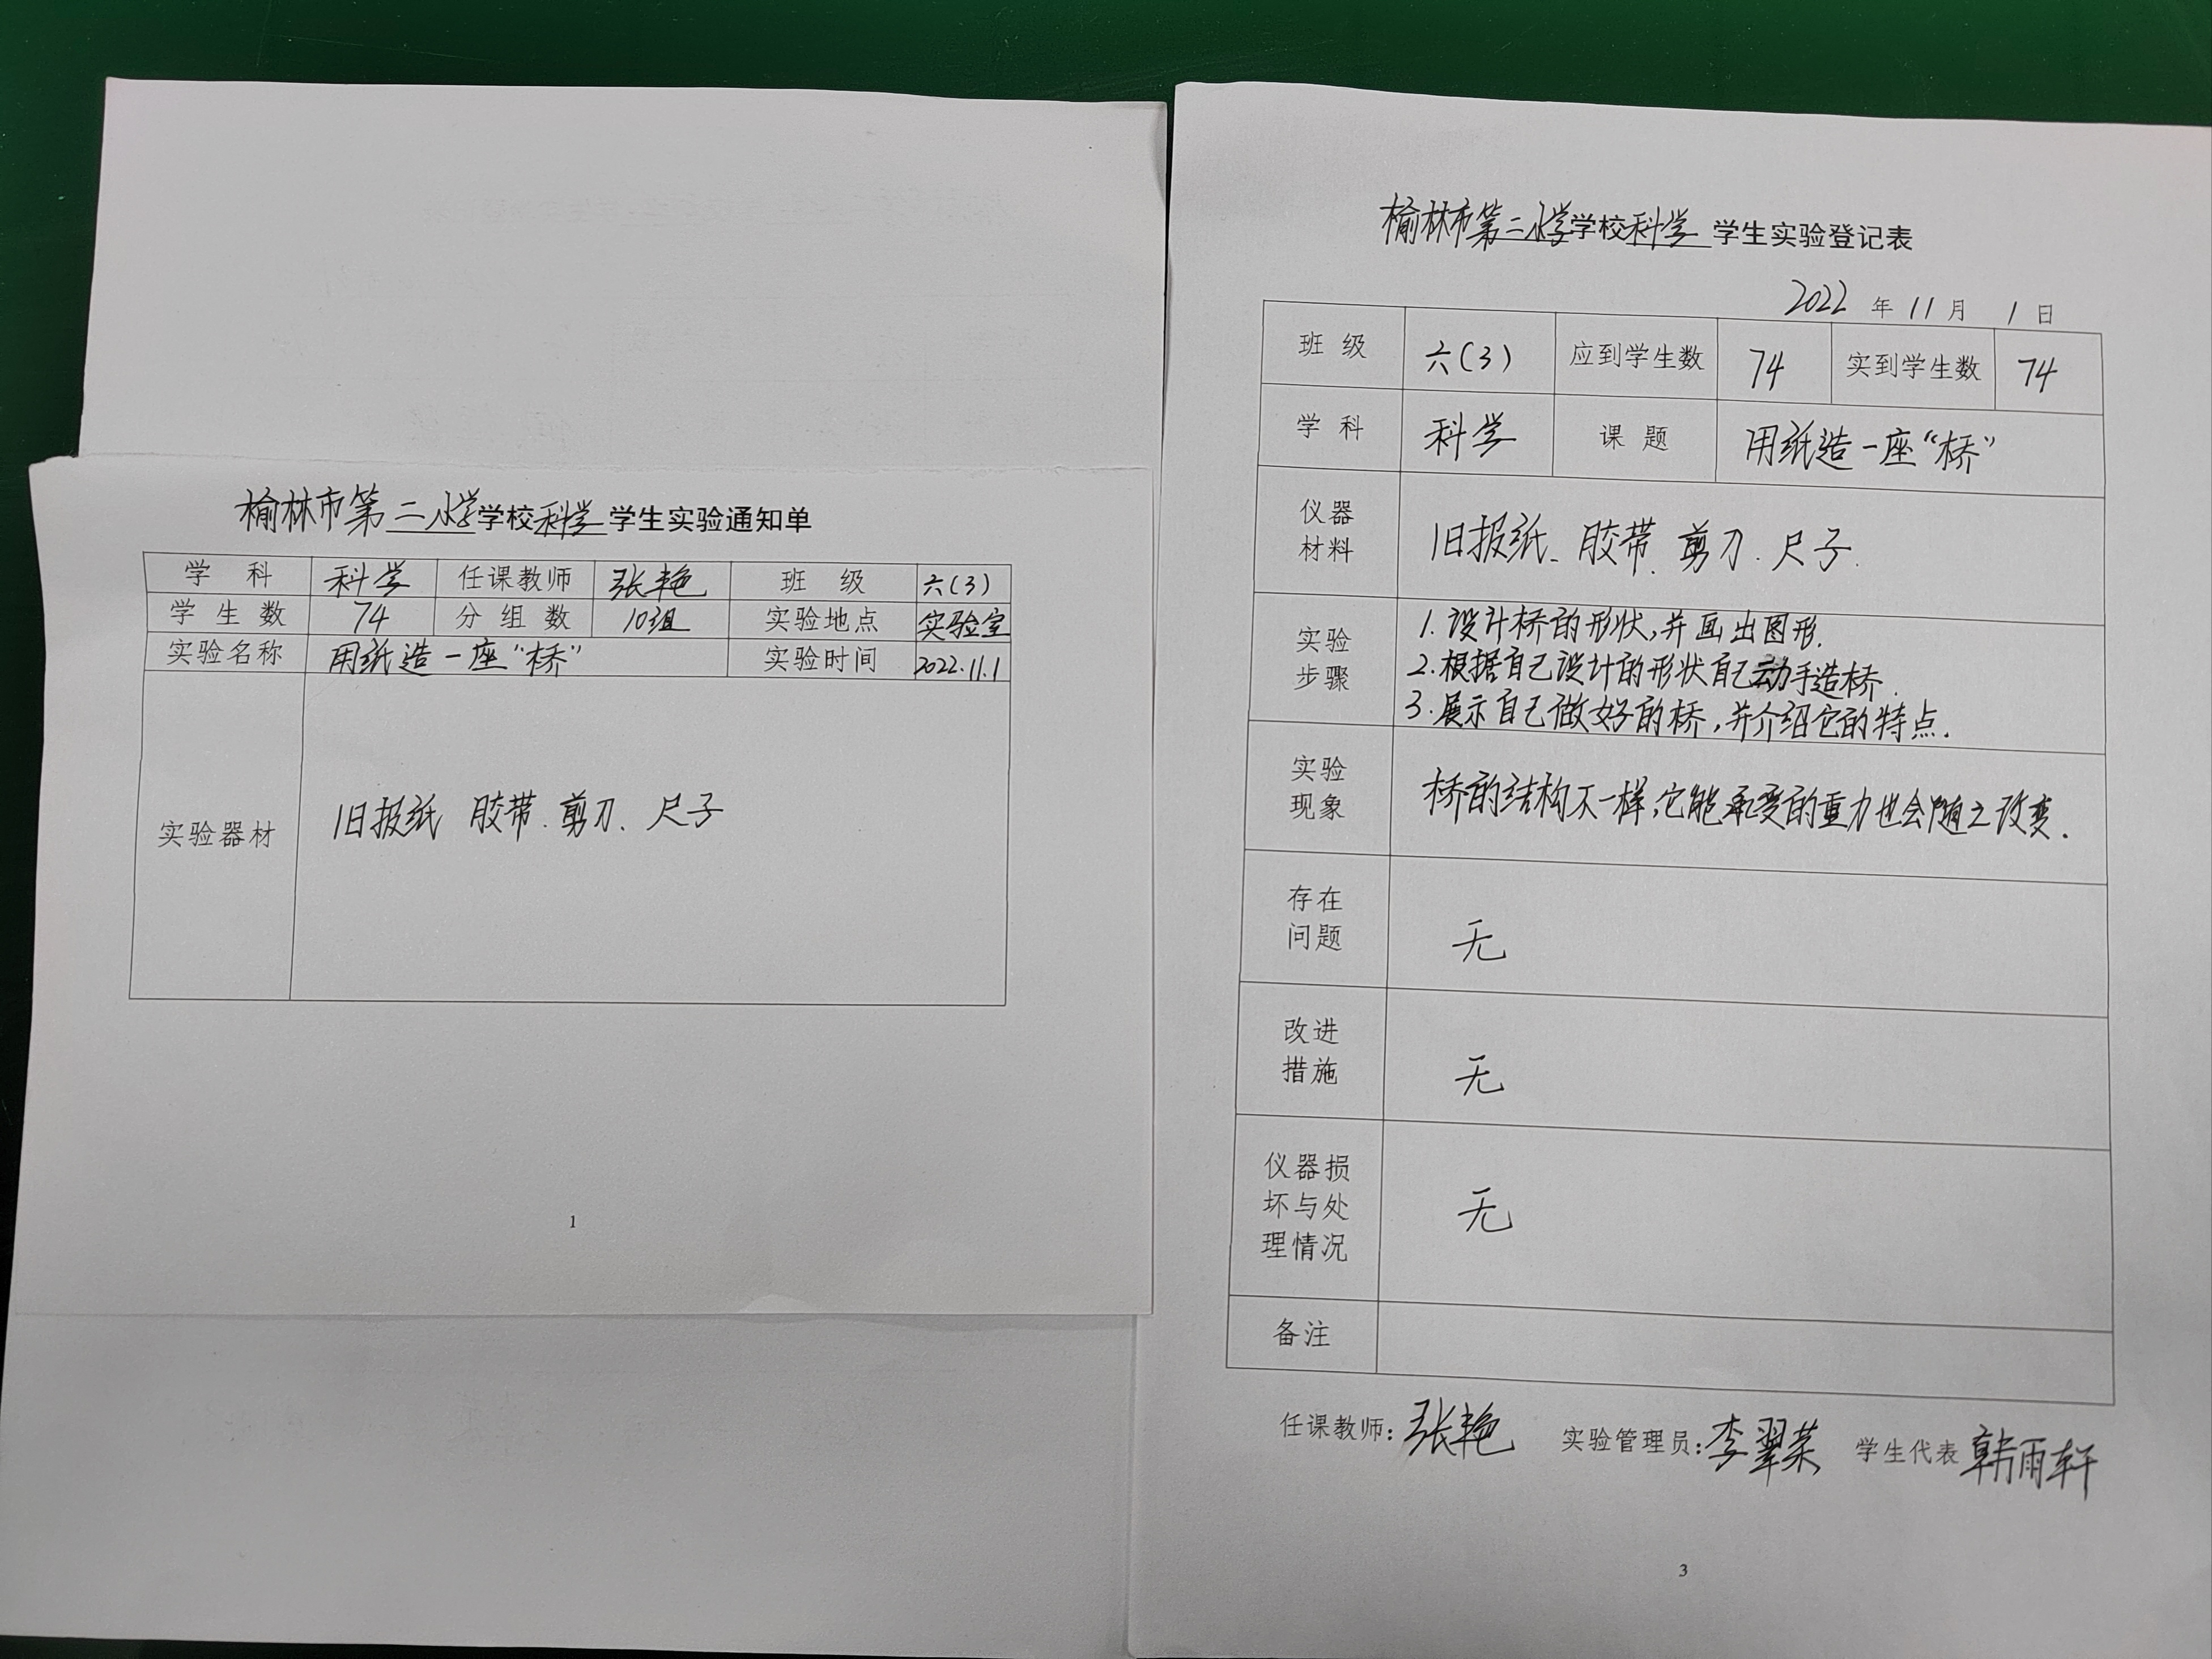 榆林市第二小学学校科学学生实验通知单
学 科 科学 任课教师 张艳 班 级 六(3)
学 生 数 74 分 组 数 10组 实验地点 实验室
实验名称 用纸造一座“桥” 实验时间 2022.11.1
实验器材 旧报纸 胶带.剪刀、尺子
1
榆林市第二小学学校科学 学生实验登记表
2022 年 11 月 1 日
班 级 六(3) 应到学生数 74 实到学生数 74
学 科 科学 课 题 用纸造一座“桥”
仪器
材料
旧报纸、胶带.剪刀.尺子.
实验
步骤
1.设计桥的形状,并画出图形.
2.根据自己设计的形状自己动手造桥.
3.展示自己做好的桥,并介绍它的特点.
实验
现象
桥的结构不一样,它能承受的重力也会随之改变.
存在
问题
无
改进
措施
无
仪器损
坏与处
理情况
无
备注
任课教师:张艳 实验管理员:李翠荣 学生代表 韩雨轩
3